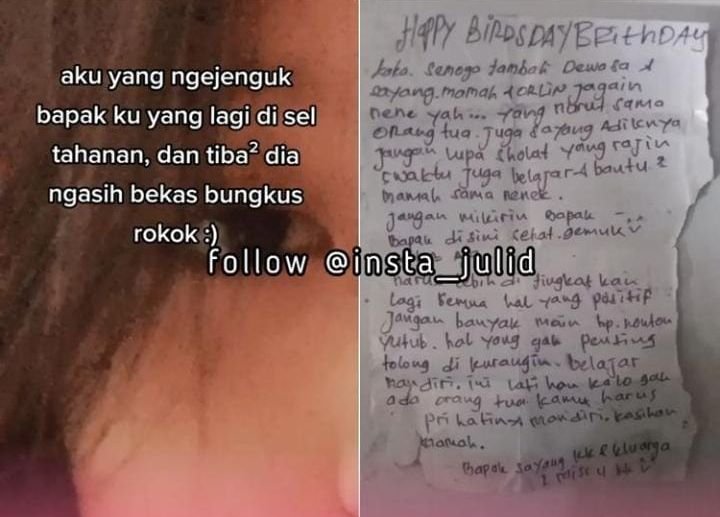 aku yang ngejenguk
bapak ku yang lagi di sel
tahanan, dan tiba² dia
ngasih bekas bungkus
rokok :)
follow @insta_julid
HAPPY BIRDSDAY/BRithDAY
koko. Semogo tambah Dewasa &
sayang. mamah & ORLIN jagain
nene yah... yang nurut sama
ORang tua. Juga sayang Adiknya
Jangan lupa Sholat yang rajin
5waktu Juga belajar & bantu 2
mamah sama nenek.
Jangan mikirin Bapak
Bapak disini sehat. gemuk
harus lebih di tingkat kan
Lagi semua hal yang positif
Jangan banyak main hp. nonton
yutub. hal yang gak penting
tolong di kurangin. belajar
mandiri. ini latihan kalo gak
ada orang tua kamu harus
prihatin & mandiri. kasihan
mamah.
Bapak sayang kk & kluarga
I miss u kk